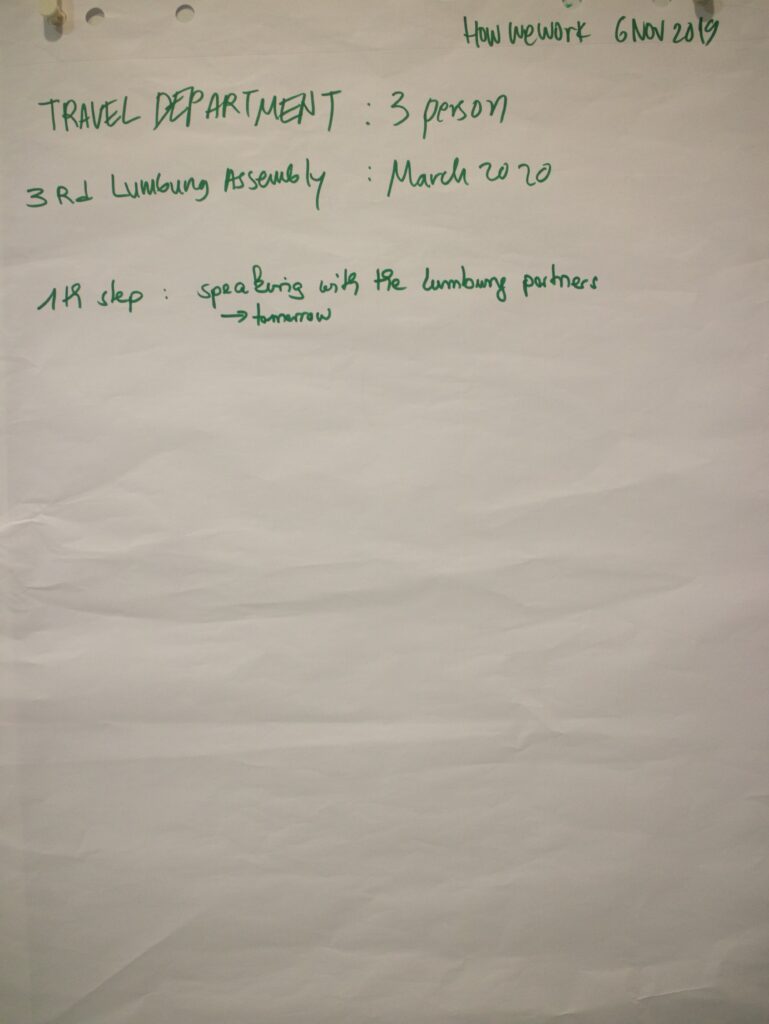 How we work 6 NOV 2019
TRAVEL DEPARTMENT : 3 person
3Rd Lumbung Assembly : March 2020
1th step : speaking with the lumbung partners
→ tomorrow